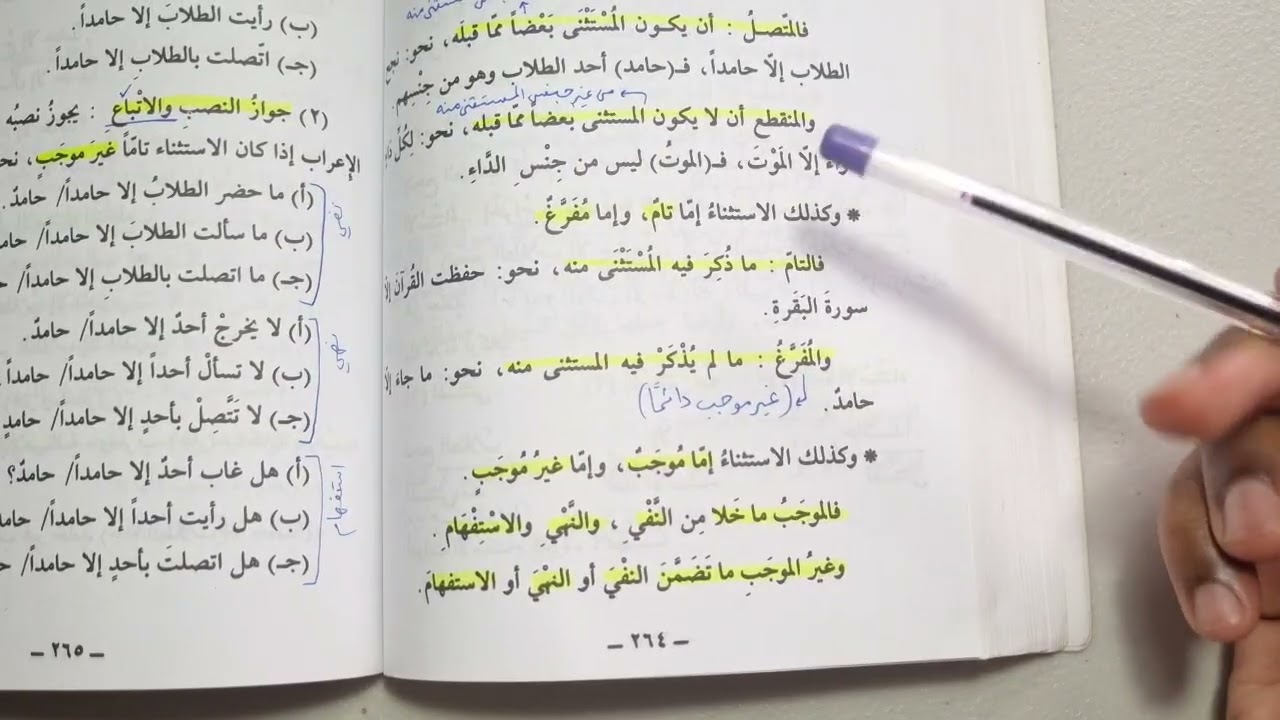 فالمتّصلُ : أن يكون المُسْتَثْنَى بَعْضاً ممّا قبلَه، نحو: نجح
الطلاب إلاّ حامداً، فـ(حامد) أحد الطلاب وهو من جِنْسِهم.
من غير جنس المستثنى منه
والمنقطع أن لا يكون المستثنى بعضاً ممّا قبله، نحو: لِكُلِّ
إلاّ المَوْتَ، فـ(الموتُ) ليس من جِنْسِ الدَّاءِ.
* وكذلك الاستثناءُ إمّا تامّ، وإما مُفَرَّغٌ.
فالتامّ : ما ذُكِرَ فيه المُسْتَثْنَى منه، نحو: حفظت القُرآنَ إلّا
سورةَ البَقَرةِ.
والمُفَرَّغُ : ما لم يُذْكَرْ فيه المستثنى منه، نحو: ما جاءَ إلّا
حامدٌ. (غير موجب دائمًا)
* وكذلك الاستثناءُ إمّا مُوجَبٌ، وإمّا غيرُ مُوجَبٍ.
فالموجَبُ ما خَلا مِن النَّفْيِ، والنَّهْيِ والاسْتِفْهَامِ.
وغيرُ الموجَبِ ما تَضَمَّنَ النفْيَ أو النهْيَ أو الاستفهامَ.
– ٢٦٤ –
(ب) رأيت الطلابَ إلا حامداً.
(جـ) اتّصلت بالطلابِ إلا حامداً.
(٢) جوازُ النصبِ والاتْباعِ : يجوزُ نصبُه
الإعراب إذا كان الاستثناء تامّاً غيرَ موجَبٍ، نحو
(أ) ما حضر الطلابُ إلا حامداً/ حامدٌ.
(ب) ما سألت الطلابَ إلا حامداً/
(جـ) ما اتصلت بالطلابِ إلا حامداً/
نفي
(أ) لا يخرجْ أحدٌ إلا حامداً/ حامدٌ.
(ب) لا تسألْ أحداً إلا حامداً/ حامداً
(جـ) لا تَتَّصِلْ بأحدٍ إلا حامداً/ حامدٍ
نهي
(أ) هل غاب أحدٌ إلا حامداً/ حامدٌ؟
(ب) هل رأيت أحداً إلا حامداً/
(جـ) هل اتصلتَ بأحدٍ إلا حامداً/
استفهام
– ٢٦٥ –